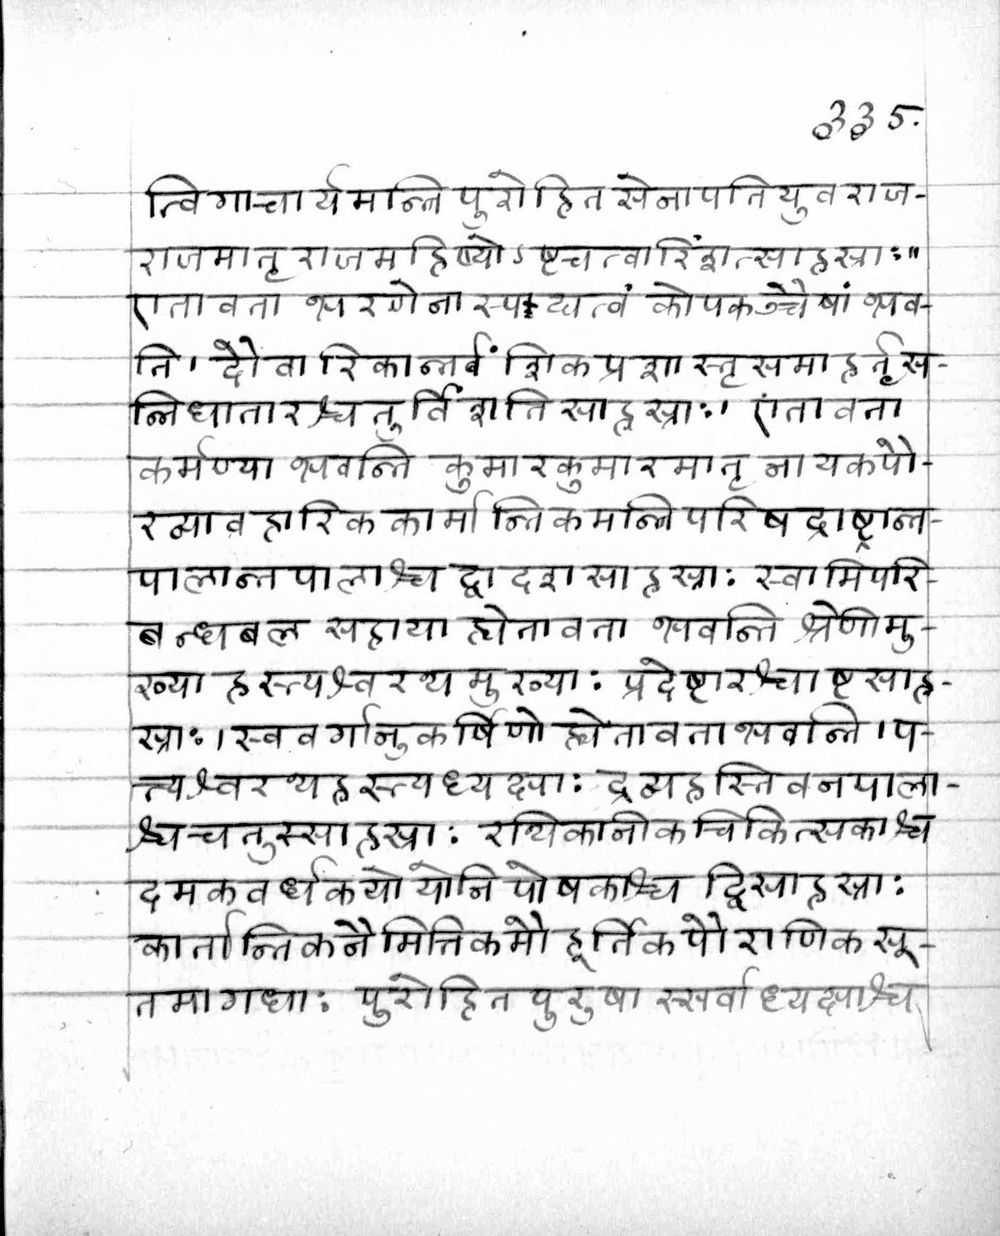 335.
त्विगाचार्यमन्त्रिपुरोहितसेनापतियुवराज-
राजमातृराजमहिष्योऽष्टचत्वारिंशत्साहस्राः॥
एतावता भरणेनास्पद्यत्वं कोपकञ्चैषां भव-
ति। दौवारिकान्तर्वंशिकप्रशास्तृसमाहर्तृस-
न्निधातारश्चतुर्विंशतिसाहस्राः। एतावता
कर्मण्या भवन्ति कुमारकुमारमातृनायकपौ-
रव्यावहारिककार्मान्तिकमन्त्रिपरिषद्राष्ट्रान्त-
पालान्तपालाश्च द्वादशसाहस्राः स्वामिपरि-
बन्धबलसहाया ह्येतावता भवन्ति श्रेणीमु-
ख्या हस्त्यश्वरथमुख्याः प्रदेष्टारश्चाष्टसाह-
स्राः। स्ववर्गानुकर्षिणो ह्येतावता भवन्ति। प-
त्त्यश्वरथहस्त्यध्यक्षाः द्रव्यहस्तिवनपाला-
श्च चतुस्साहस्राः रथिकानीकचिकित्सकाश्व
दमकवर्धकयो योनिपोषकाश्च द्विसाहस्राः
कार्तान्तिकनैमित्तिकमौहूर्तिकपौराणिकसू-
तमागधाः पुरोहितपुरुषास्सर्वाध्यक्षाश्च